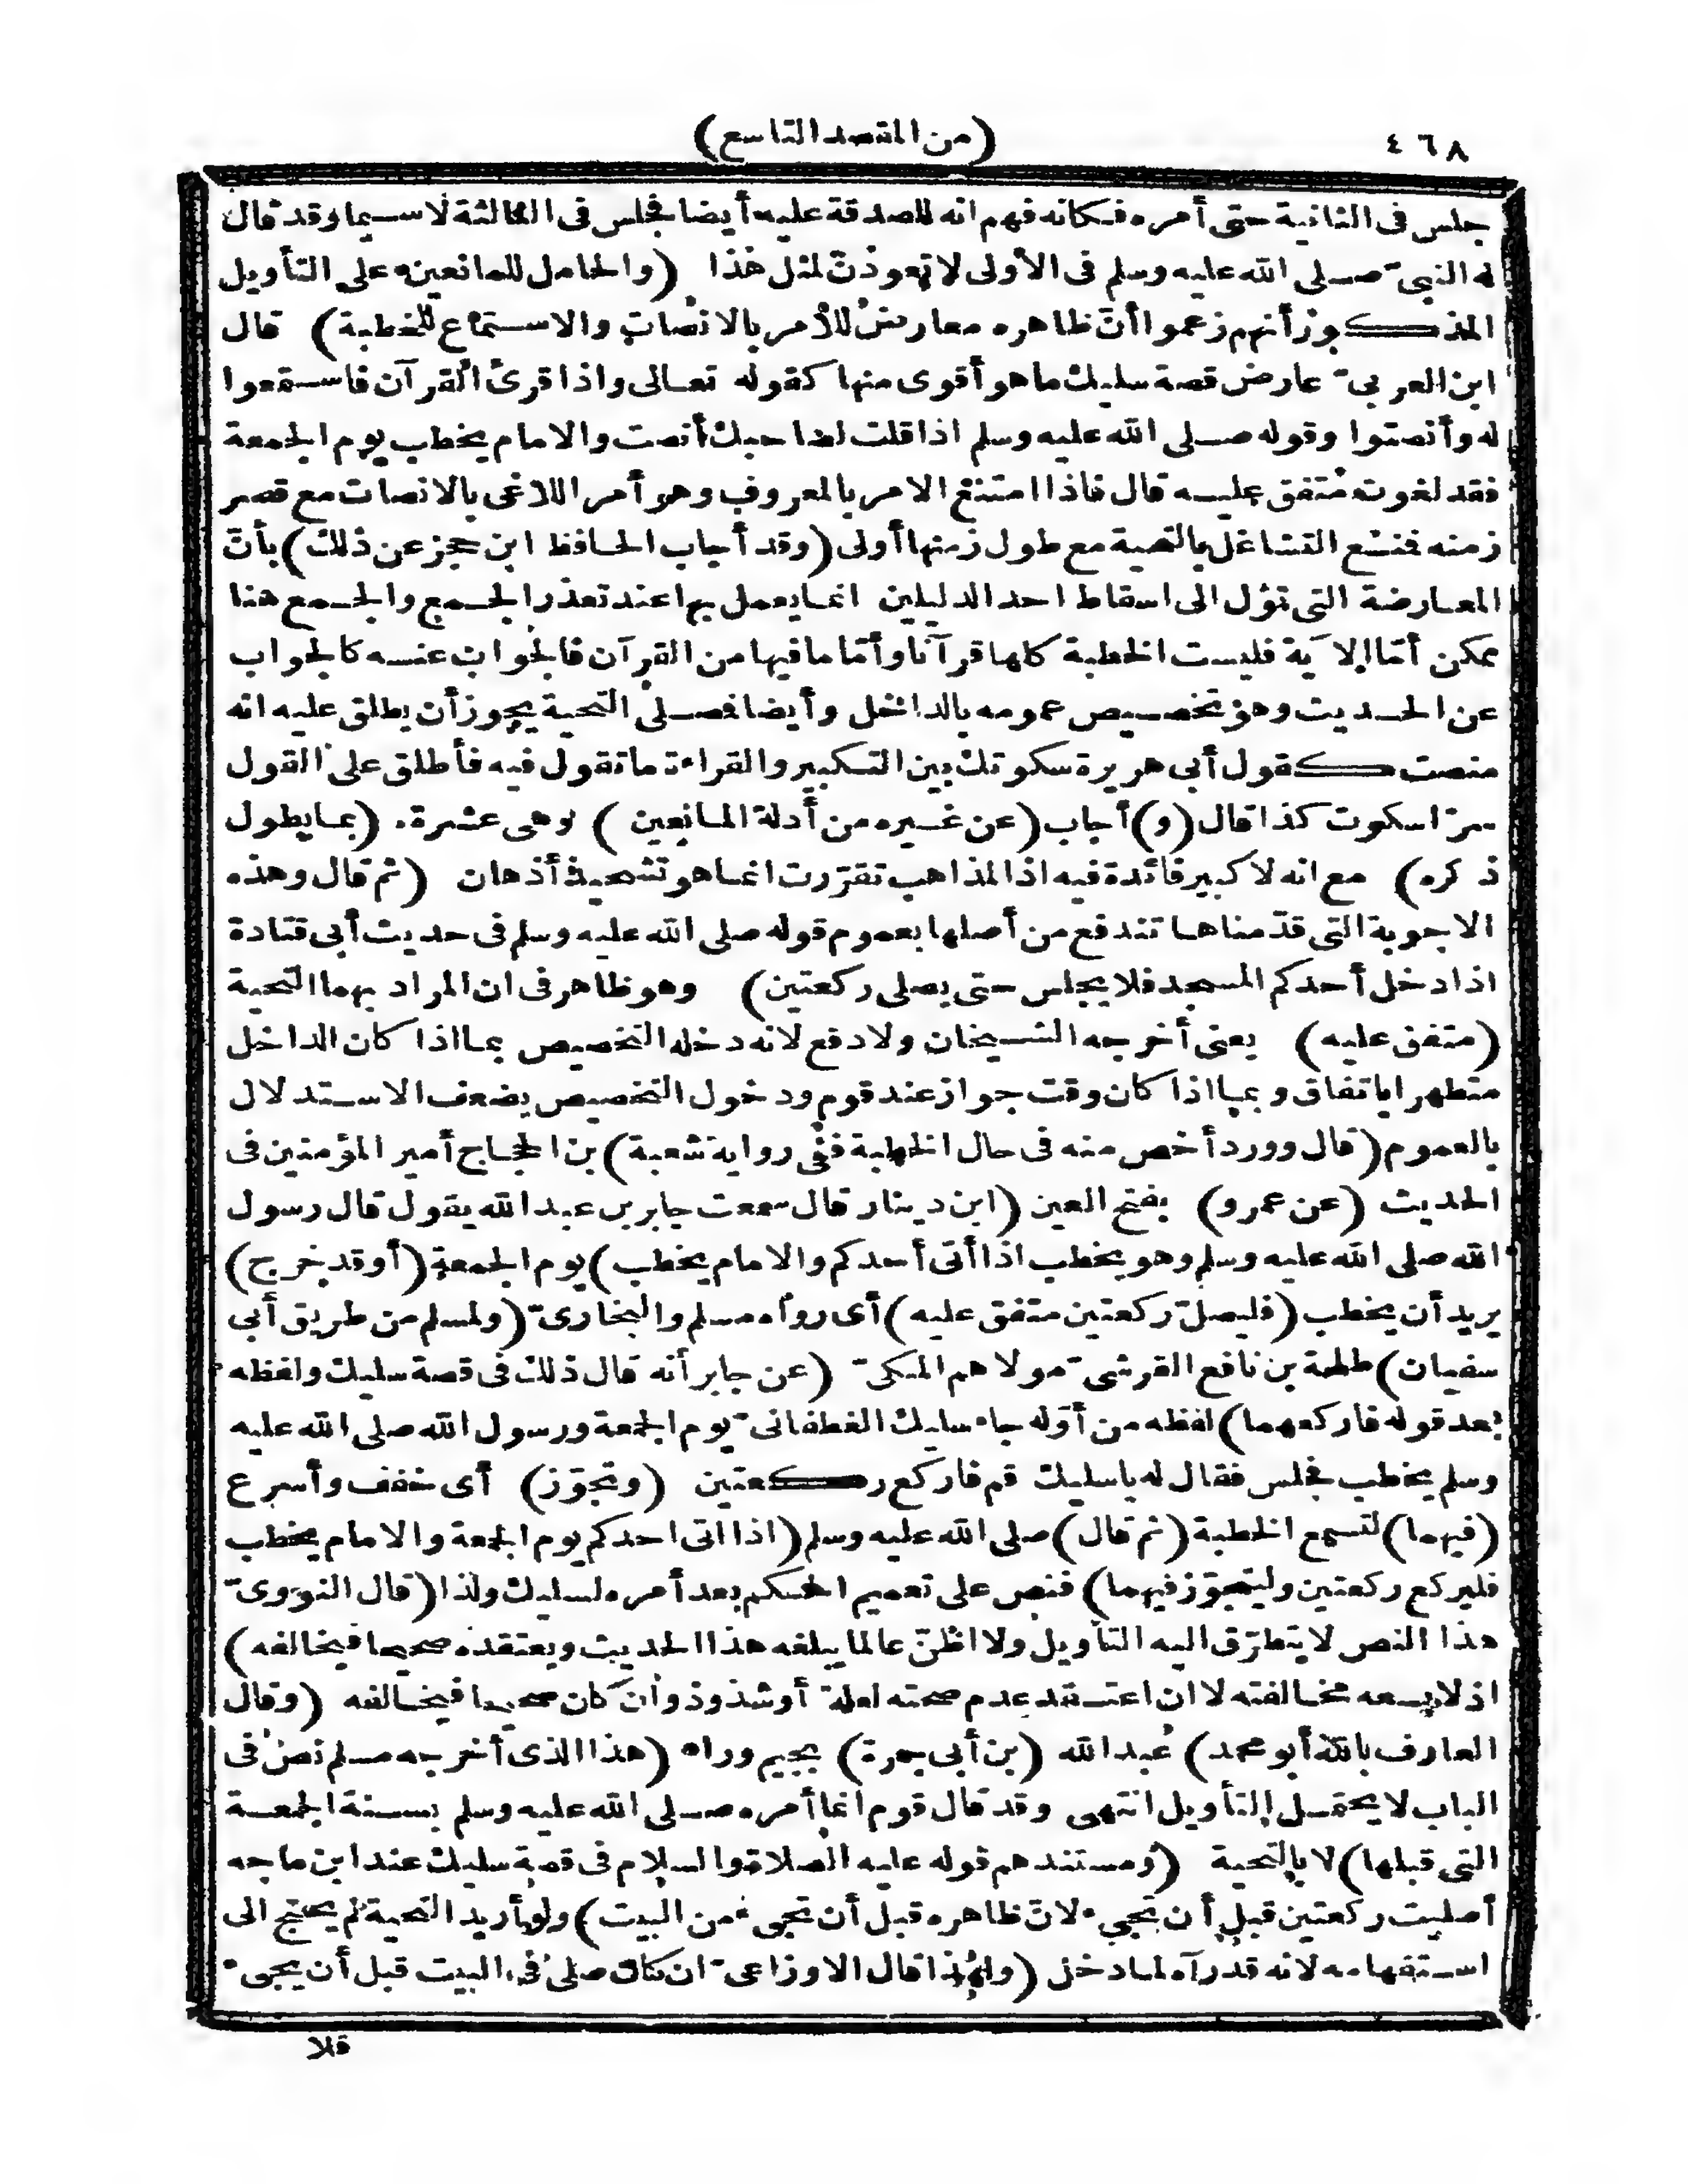 ٤٦٨
(من المقصد التاسع)
جلس فى الثانية حتى أمره فكانه فهم انه للصدقة عليه أيضا فجلس فى الثالثة لاسيما وقد قال
له النبىّ صلى الله عليه وسلم فى الاولى لا تعودنّ لمثل هذا (والحامل للمانعين على التأويل
المذكور أنهم زعموا أنّ ظاهره معارض للأمر بالانصات والاستماع للخطبة) قال
ابن العربىّ عارض قصة سليك ما هو أقوى منها كقوله تعالى واذا قرئ القرآن فاستمعوا
له وأنصتوا وقوله صلى الله عليه وسلم اذا قلت لصاحبك أنصت والامام يخطب يوم الجمعة
فقد لغوت متفق عليه قال فاذا امتنع الامر بالمعروف وهو أمر اللاغى بالانصات مع قصر
زمنه فمنع التشاغل بالتحية مع طول زمنها أولى (وقد أجاب الحافظ ابن حجر عن ذلك) بأنّ
المعارضة التى تؤل الى اسقاط احد الدليلين انما يعمل بها عند تعذر الجمع والجمع هنا
ممكن أمّا الآية فليست الخطبة كلها قرآنا وأمّا ما فيها من القرآن فالجواب عنه كالجواب
عن الحديث وهو تخصيص عمومه بالداخل وأيضا فمصلى التحية يجوز أن يطلق عليه انه
منصت كقول أبى هريرة سكوتك بين التكبير والقراءة ما تقول فيه فأطلق على القول
سرّا سكوت كذا قال (و) أجاب (عن غيره من أدلة المانعين) وهى عشرة (بما يطول
ذكره) مع انه لا كبير فائدة فيه اذ المذاهب تقرّرت انما هو تشحيذ أذهان (ثم قال وهذه
الاجوبة التى قدّمناها تندفع من أصلها بعموم قوله صلى الله عليه وسلم فى حديث أبى قتادة
اذا دخل أحدكم المسجد فلا يجلس حتى يصلى ركعتين) وهو ظاهر فى ان المراد بهما التحية
(متفق عليه) يعنى أخرجه الشيخان ولا دفع لانه دخله التخصيص بما اذا كان الداخل
متطهرا باتفاق وبما اذا كان وقت جواز عند قوم ودخول التخصيص يضعف الاستدلال
بالعموم (قال وورد أخص منه فى حال الخطبة ففى رواية شعبة) بن الحجاج أمير المؤمنين فى
الحديث (عن عمرو) بفتح العين (ابن دينار قال سمعت جابر بن عبد الله يقول قال رسول
الله صلى الله عليه وسلم وهو يخطب اذا أتى أحدكم والامام يخطب) يوم الجمعة (أو قد خرج)
يريد أن يخطب (فليصلّ ركعتين متفق عليه) أى رواه مسلم والبخارىّ (ولمسلم من طريق أبى
سفيان) طلحة بن نافع القرشىّ مولاهم المكىّ (عن جابر أنه قال ذلك فى قصة سليك ولفظه
بعد قوله فاركعهما) لفظه من أوّله جاء سليك الغطفانىّ يوم الجمعة ورسول الله صلى الله عليه
وسلم يخطب فجلس فقال له يا سليك قم فاركع ركعتين (وتجوّز) أى خفف وأسرع
(فيهما) لتسمع الخطبة (ثم قال) صلى الله عليه وسلم (اذا اتى احدكم يوم الجمعة والامام يخطب
فليركع ركعتين وليتجوّز فيهما) فنص على تعميم الحكم بعد أمره لسليك ولذا (قال النووىّ
هذا النص لا يتطرّق اليه التأويل ولا اظنّ عالما يبلغه هذا الحديث ويعتقده صحيحا فيخالفه)
اذ لا يسعه مخالفته لا ان اعتقد عدم صحته لعلة أو شذوذ وان كان صحيحا فيخالفه (وقال
العارف بالله أبو محمد) عبد الله (بن أبى جمرة) بجيم وراء (هذا الذى أخرجه مسلم نص فى
الباب لا يحتمل التأويل انتهى وقد قال قوم انما أمره صلى الله عليه وسلم بسنة الجمعة
التى قبلها) لا بالتحية (ومستندهم قوله عليه الصلاة والسلام فى قصة سليك عند ابن ماجه
أصليت ركعتين قبل أن تجىء لانّ ظاهره قبل أن تجىء من البيت) ولو أريد التحية لم يحتج الى
استفهامه لانه قد رآه لما دخل (ولهذا قال الاوزاعىّ ان كان صلى فى البيت قبل أن يجىء
فلا